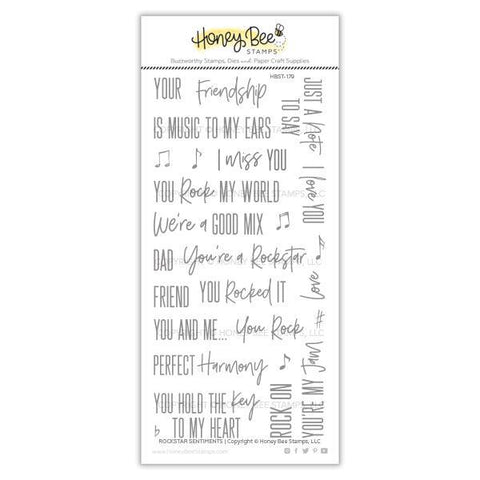 Honey Bee
STAMPS
Buzzworthy Stamps, Dies and Paper Craft Supplies
HBST-179
YOUR Friendship
IS MUSIC TO MY EARS
I miss YOU
YOU Rock MY WORLD
We're a GOOD MIX
DAD You're a Rockstar
FRIEND YOU Rocked IT
YOU AND ME... You Rock
PERFECT Harmony
YOU HOLD THE Key
TO MY HEART
JUST A Note
TO SAY
I love YOU
Love
YOU'RE MY Jam #
ROCK ON
ROCKSTAR SENTIMENTS | Copyright © Honey Bee Stamps, LLC
www.HoneyBeeStamps.com